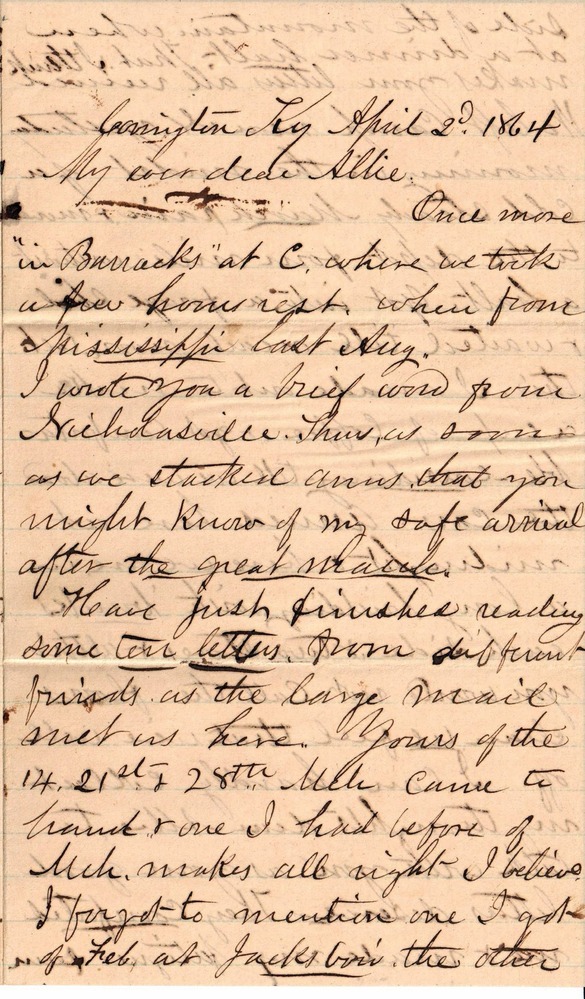 Covington Ky April 2d. 1864
My ever dear Allie.
Once more
"in Barracks" at C. where we took
a few hours rest. when from
Mississippi last Aug.
I wrote you a brief word from
Nicholasville. Thurs, as soon
as we stacked arms. that you
might know of my safe arrival
after the great march.
Have just finished reading
some ten letters. from different
friends. as the large mail
met us here. Yours of the
14. 21st & 28th. Mch came to
hand. & one I had before of
Mch. makes all right I believe.
I forgot to mention one I got
of Feb. at Jacksboro'. the other